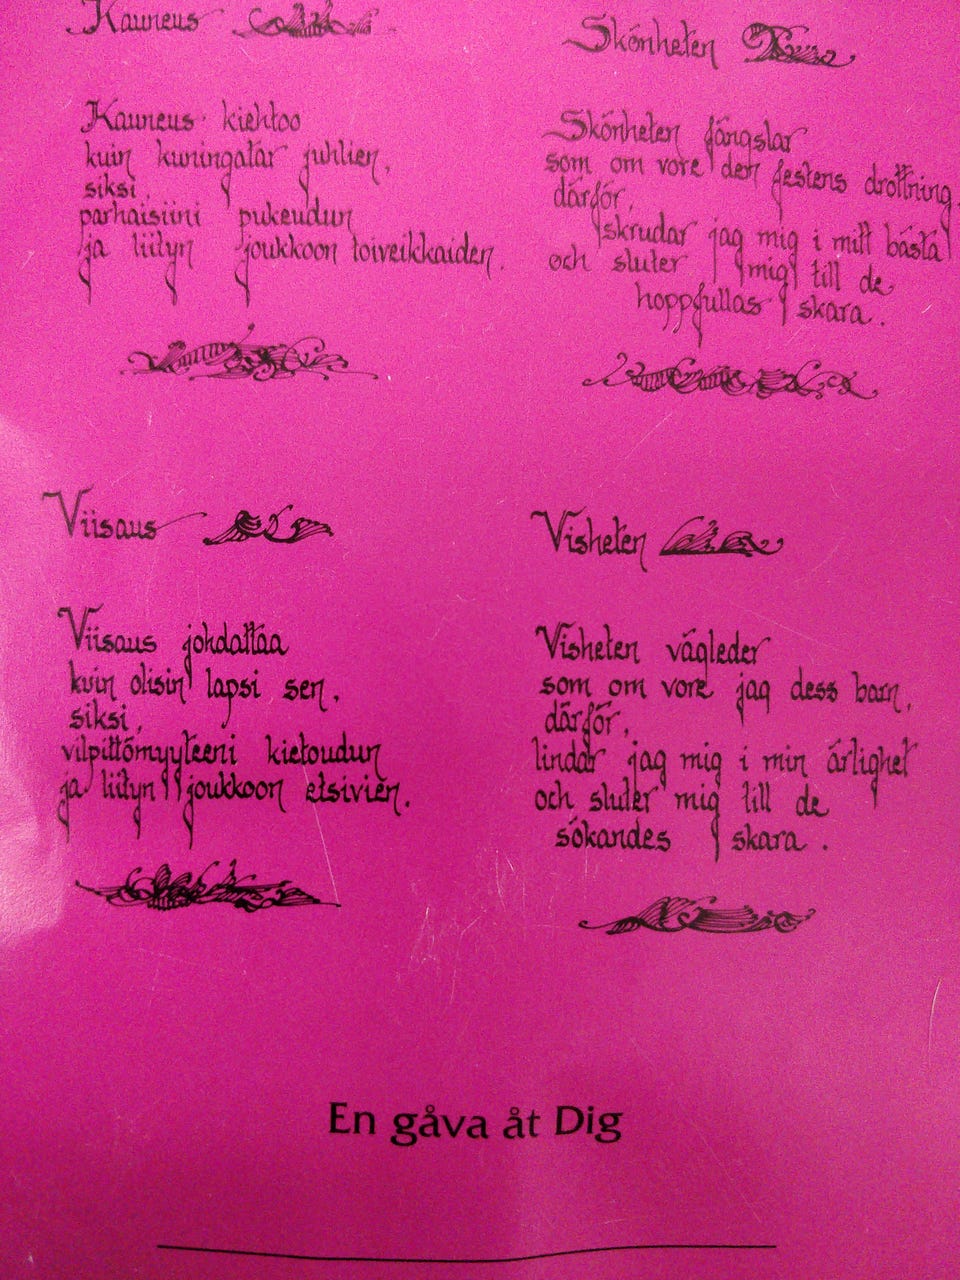 Kauneus
Kauneus kiehtoo
kuin kuningatar juhlien,
siksi,
parhaisiini pukeudun
ja liityn joukkoon toiveikkaiden.
Skönheten
Skönheten fängslar
som om vore den festens drottning,
därför,
skrudar jag mig i mitt bästa
och sluter mig till de
hoppfullas skara.
Viisaus
Viisaus johdattaa
kuin olisin lapsi sen,
siksi,
vilpittömyyteeni kietoudun
ja liityn joukkoon etsivien.
Visheten
Visheten vägleder
som om vore jag dess barn,
därför,
lindar jag mig i min ärlighet
och sluter mig till de
sökandes skara.
En gåva åt Dig